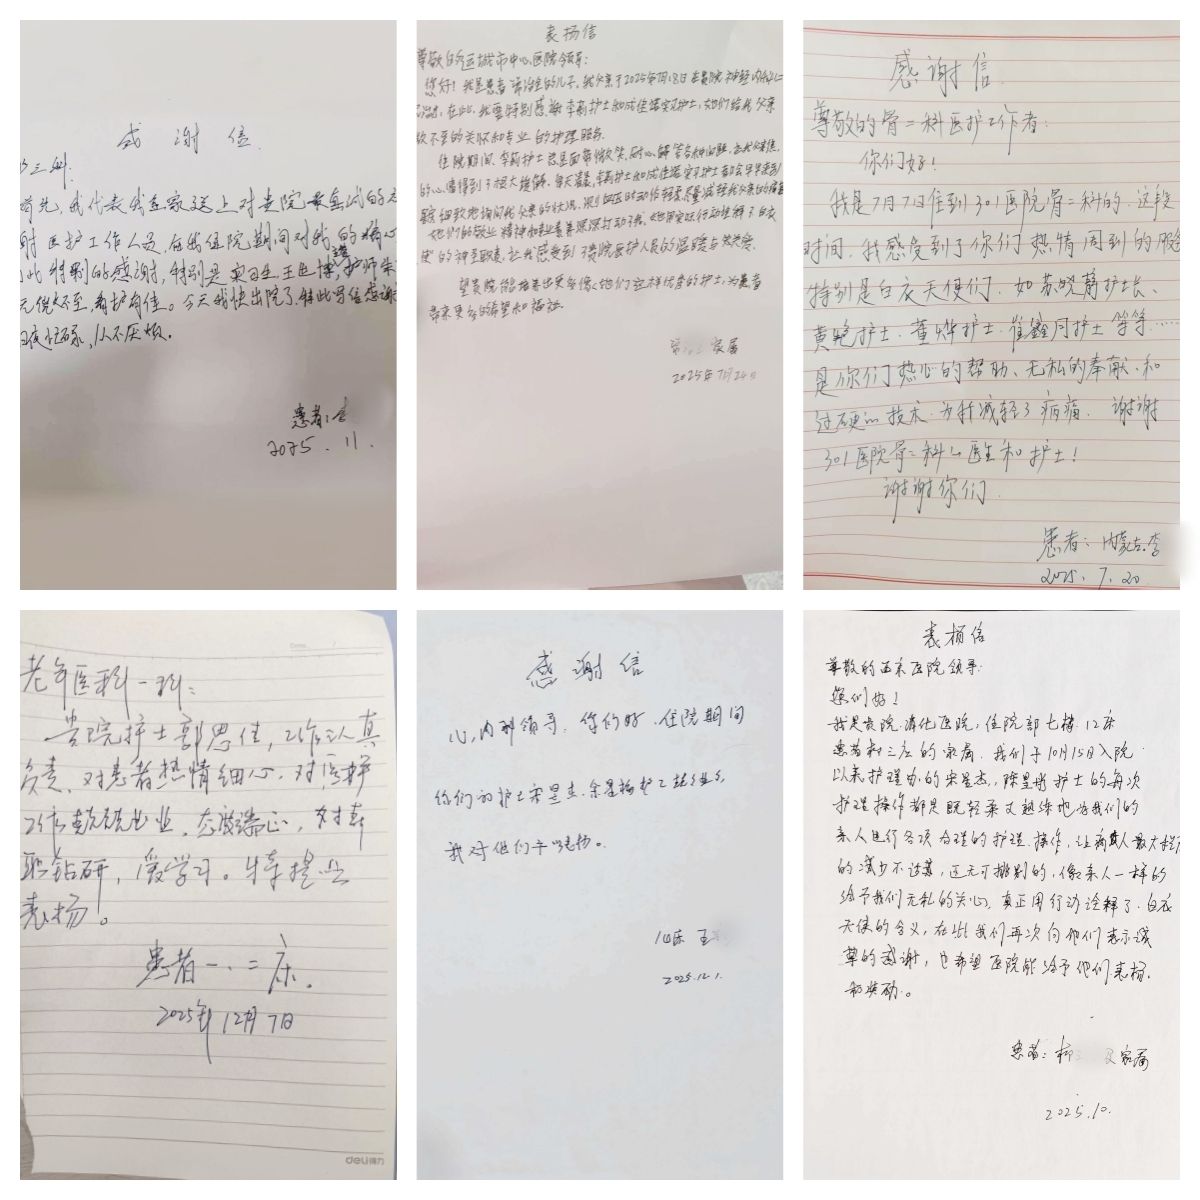 感谢信
首先，我代表我全家送上对贵院最真诚的
谢 医护工作人员，在我住院期间对我的精心
此特别的感谢，特别是实习生王
无微不至，看护有佳。今天我快出院了，特此写信感谢
从不厌烦。
患者：
2025.11.
表扬信
尊敬的运城市中心医院领导：
您好！我是患者 的儿子，我父亲于2025年7月18日在贵院神经内科
治疗。在此，我要特别感谢李莉护士和成佳
微不至的关怀和专业的护理服务。
住院期间，李莉护士总是面带微笑，耐心解答各种问题，
的心情得到了很大缓解。每天清晨，李莉护士和成佳
细致地询问我父亲的状况，测血压时动作轻柔，尽量减轻我父亲的
她们的敬业精神和职业素养深深打动了我，她用实际行动诠释了白衣
使"的神圣职责，让我感受到了贵院医护人员的温暖与
望贵院能培养出更多像她们这样优秀的护士，为患者
带来更多的希望和福祉。
家属
2025年7月24日
感谢信
尊敬的骨二科医护工作者：
你们好！
我是7月7日住到301医院骨二科的，这段
时间，我感受到了你们热情周到的服
特别是白衣天使们，如苏晓静护士长、
黄艳护士、董烨护士、崔鑫月护士等等……
是你们热心的帮助、无私的奉献、和
过硬的技术，为我减轻了病痛，谢谢
301医院骨二科的医生和护士！
谢谢你们
患者：内蒙古 李
2025.7.20
老年医科一科：
贵院护士郭思佳，工作认真
负责、对患者热情细心，对医护
工作兢兢业业，态度端正，对本
职钻研，爱学习。特提出
表扬。
患者一.二床.
2025年12月7日
deli得力
感谢信
心内科领导，你们好，住院期间
你们的护士宋星杰、
我对他们予以表扬。
王
2025.12.1.
表扬信
尊敬的 医院领导：
您们好！
我是贵院消化医院，住院部七楼12床
患者 的家属，我们于10月15日入院
以来护理部的宋星杰，陈 护士的每次
护理操作都是既轻柔又熟练地为我们的
亲人进行各项合理的护理操作，让病人最大程度
的减少不适感，还无可挑剔的，像亲人一样的
给予我们无私的关心，真正用行动诠释了白衣
天使的含义，在此我们再次向他们表示诚
挚的感谢，也希望医院能给予他们表扬
和奖励。
患者：柳 及家属
2025.10.